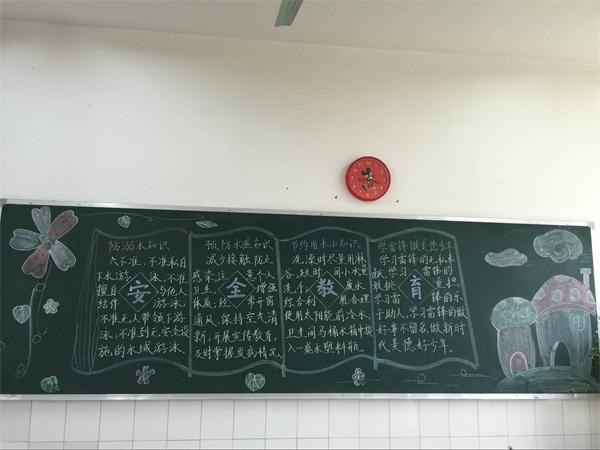 防溺水知识
六不准，不准私自
下水游泳，不准
擅自与他人
结伴游泳，
不准无人带领下游
泳，不准到无安全设
施的水域游泳。
安
预防水痘知识
减少接触，防止
感染，注意个人
卫生，增强
体质，经常开窗
通风，保持空气清
新，开展宣传教育，
及时掌握发病情况
全
节约用水小知识
洗澡时尽量用淋
浴，短时间小水量
洗手，废水
综合利用
使用太阳能前冷水，
卫生间马桶水箱中放
入一盛水塑料瓶。
教
学雷锋做美德少年
学习雷锋的无私奉
献，学习雷锋的
学习雷锋的乐
于助人，学习雷锋的做
好事不留名，做新时
代美德好少年。
育